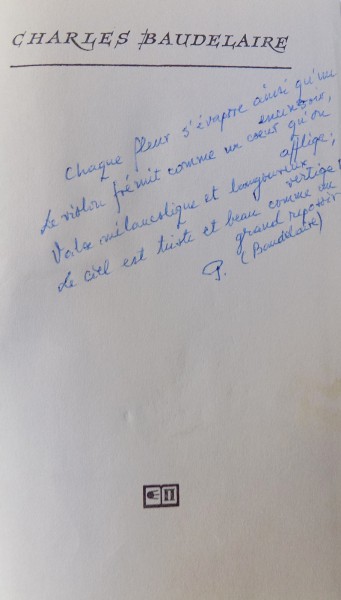 CHARLES BAUDELAIRE
Chaque fleur s'évapore ainsi qu'un
encensoir,
Le violon frémit comme un cœur qu'on
afflige;
Valse mélancolique et langoureux
vertige!
Le ciel est triste et beau comme du
grand reposoir
P. (Baudelaire)